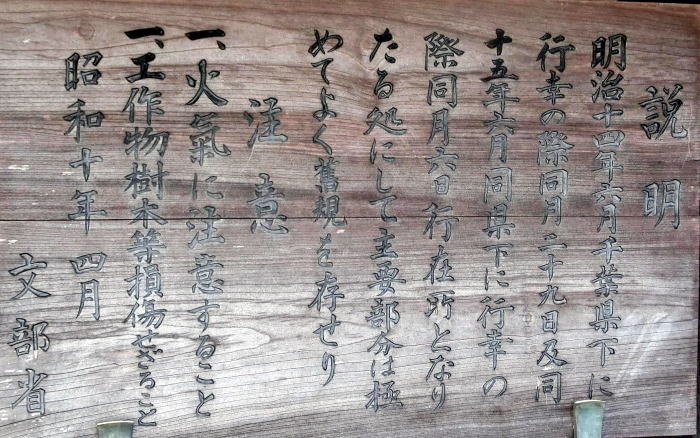 説明
明治十四年六月千葉県下に
行幸の際同月二十九日及同
十五年六月同県下に行幸の
際同月六日行在所となり
たる処にして主要部分は極
めてよく舊規を存せり
注意
一、火氣に注意すること
一、工作物樹木等損傷せざること
昭和十年四月
文部省